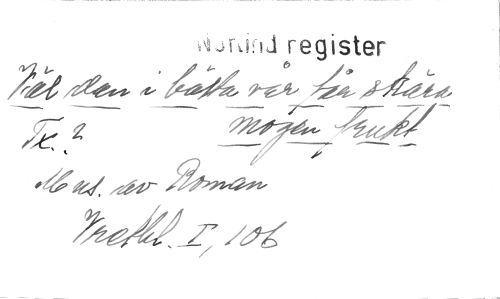 Nortind register
Väl den i bästa vår får skära
mogen frukt
Tx.?
Mus. av Roman
Vretbl. I, 106